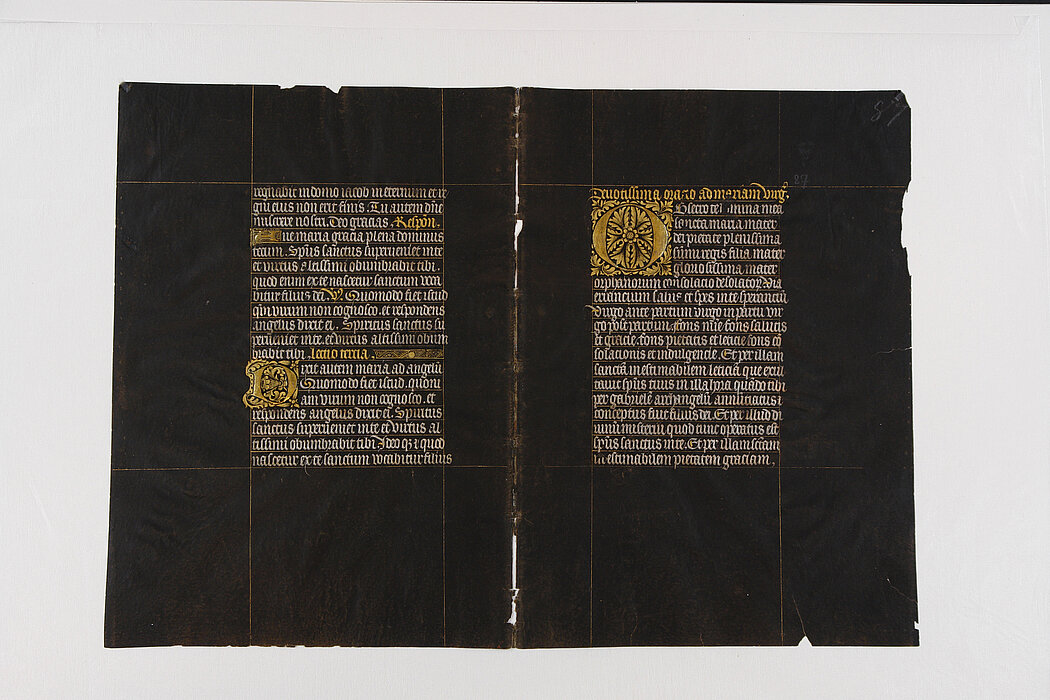 regnabit in domo iacob in eternum et re
gni eius non erit finis. Tu autem dñe
miserere nostri. Deo gracias. Respōn.
Aue maria gracia plena dominus
tecum. Sp̄us sanctus superueniet in te
et virtus altissimi obumbrabit tibi.
quod enim ex te nascetur sanctum voca
bitur filius dei. V. Quomodo fiet istud
qm̄ virum non cognosco. et respondens
angelus dixit ei. Spiritus sanctus su
perueniet in te. et virtus altissimi obum
brabit tibi. lectio tercia.
Dixit autem maria ad angelū
Quomodo fiet istud. quoni
am virum non cognosco. et
respondens angelus dixit ei. Spiritus
sanctus superueniet in te et virtus al
tissimi obumbrabit tibi Ideoqꝫ et quod
nascetur ex te sanctum vocabitur filius
87
87
Deuotissima oracio ad mariam virg̃.
Obsecro te domina mea
sancta maria mater
dei pietate plenissima
summi regis filia mater
gloriosissima. mater
orphanorum consolacio desolatoꝝ via
errancium salus et spes in te speranciū
Virgo ante partum virgo in partu vir
go post partum. fons mīe fons salutis
et gracie. fons pietatis et leticie fons cō
solacionis et indulgencie. Et per illam
sanctā inestimabilem leticiā que exul
tauit sp̄us tuus in illa hora quādo tibi
per gabrielē archangelū annūciatus ⁊
conceptus fuit filius dei. Et per illud di
uinū misteriū quod tunc operatus est
sp̄us sanctus in te. Et per illam sc̄tam
inestimabilem pietatem graciam.